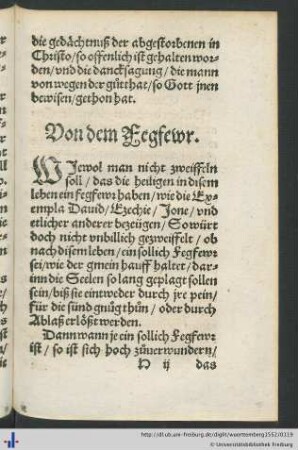 die gedächtnuß der abgestorbenen in
Christo/so offenlich ist gehalten wor-
den/vnd die dancksagung/die mann
von wegen der gůtthat/so Gott jnen
bewisen/gethon hat.
Von dem Fegfewr.
WJewol man nicht zweiffeln
soll/das die heiligen in disem
leben ein fegfewr haben/wie die Ex-
empla Dauid/Ezechie/Jone/vnd
etlicher anderer bezeügen/So würt
doch nicht vnbillich gezweiffelt/ob
nach disem leben/ein sollich Fegfewr
sei/wie der gmein hauff haltet/dar-
inn die Seelen so lang geplagt sollen
sein/biß sie eintweder durch jre pein/
für die sünd gnůg thůn/oder durch
Ablaß erlößt werden.
Dann wann je ein sollich Fegfewr
ist/so ist sich hoch zůuerwundern/
H ij das
http://dl.ub.uni-freiburg.de/diglit/wuerttemberg1552/0119
© Universitätsbibliothek Freiburg